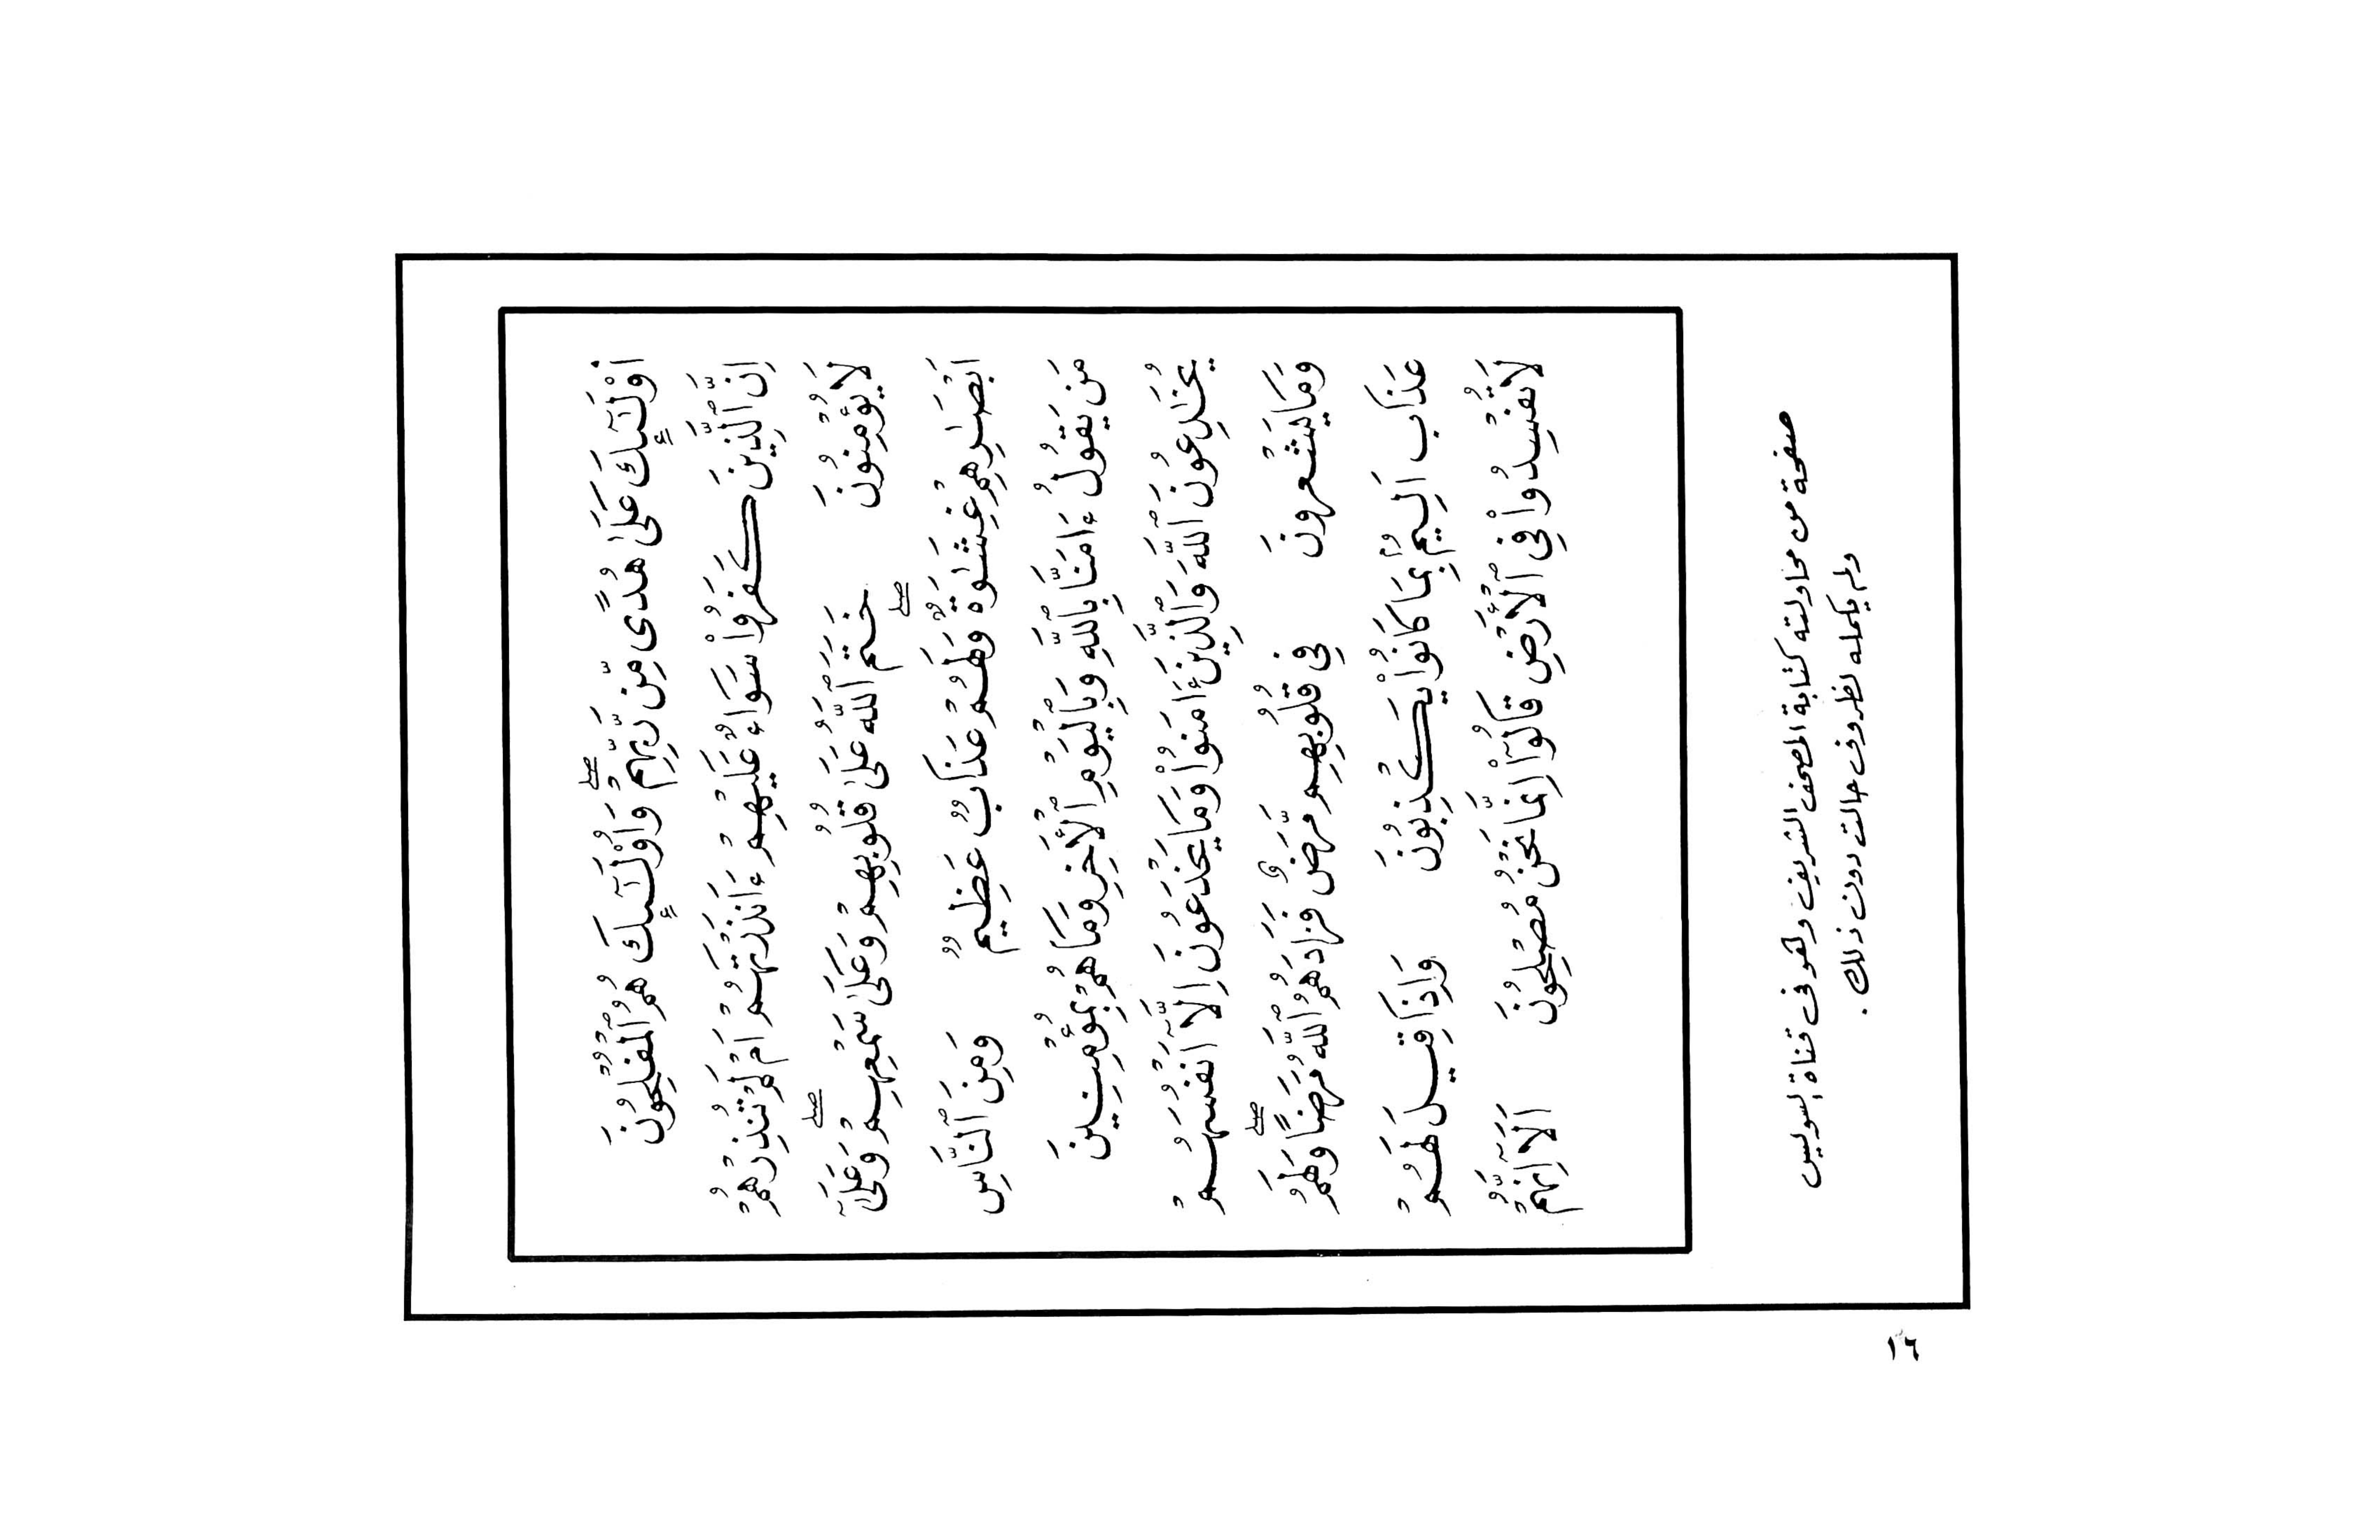 أُوْلَٰٓئِكَ عَلَىٰ هُدًى مِّن رَّبِّهِمْ ۖ وَأُوْلَٰٓئِكَ هُمُ ٱلْمُفْلِحُونَ
إِنَّ ٱلَّذِينَ كَفَرُواْ سَوَآءٌ عَلَيْهِمْ ءَأَنذَرْتَهُمْ أَمْ لَمْ تُنذِرْهُمْ
لَا يُؤْمِنُونَ خَتَمَ ٱللَّهُ عَلَىٰ قُلُوبِهِمْ وَعَلَىٰ سَمْعِهِمْ ۖ وَعَلَىٰٓ
أَبْصَٰرِهِمْ غِشَٰوَةٌ ۖ وَلَهُمْ عَذَابٌ عَظِيمٌ وَمِنَ ٱلنَّاسِ
مَن يَقُولُ ءَامَنَّا بِٱللَّهِ وَبِٱلْيَوْمِ ٱلْأَخِرِ وَمَا هُم بِمُؤْمِنِينَ
يُخَٰدِعُونَ ٱللَّهَ وَٱلَّذِينَ ءَامَنُواْ وَمَا يَخْدَعُونَ إِلَّآ أَنفُسَهُمْ
وَمَا يَشْعُرُونَ فِى قُلُوبِهِم مَّرَضٌ فَزَادَهُمُ ٱللَّهُ مَرَضًا ۖ وَلَهُمْ
عَذَابٌ أَلِيمٌ بِمَا كَانُواْ يَكْذِبُونَ وَإِذَا قِيلَ لَهُمْ
لَا تُفْسِدُواْ فِى ٱلْأَرْضِ قَالُوٓاْ إِنَّمَا نَحْنُ مُصْلِحُونَ أَلَآ إِنَّهُمْ
صفحة من محاولته كتابة المصحف الشريف وهو في قناة السويس
ولم يكمله لظروف حالت دون ذلك .
١٦